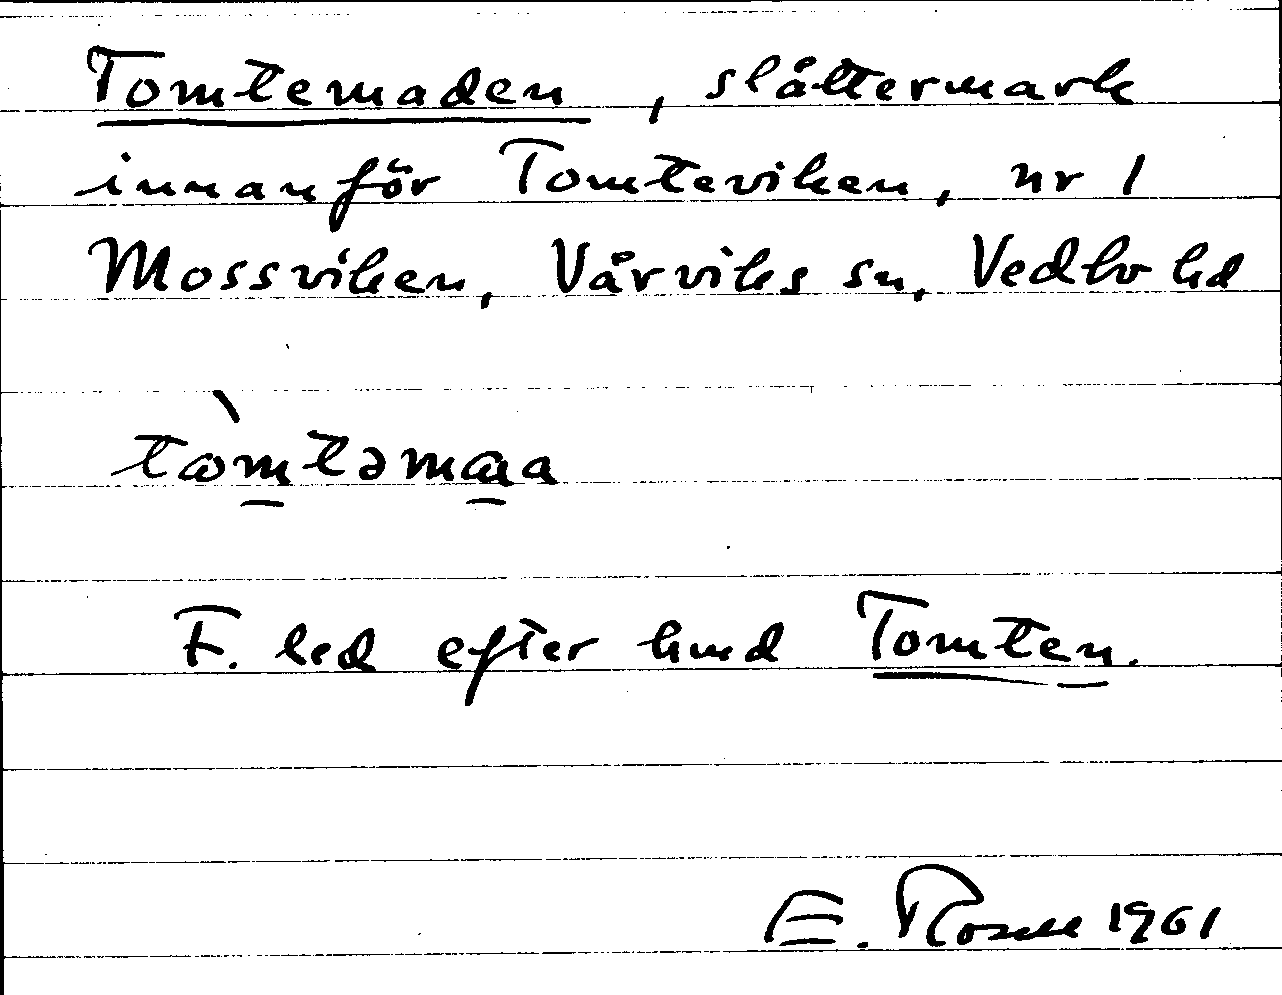 Tomtemaden, slåttermark
innanför Tomteviken, nr 1
Mossviken, Vårviks sn, Vedbo hd
tɷ̀mtəmɑa
F. led efter hmd Tomten.
E. Rosell 1961